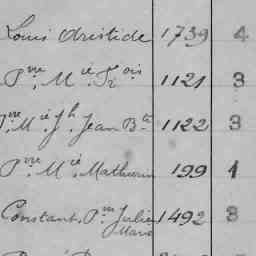 Louis Aristide 1739 4
Pre. Mie. Fr.ois 1121 3
Pre. Mie. Jh. Jean Bte 1122 3
Pre. Mie. Mathurin 199 1
Constant. Pre. Julien Marie 1492 3